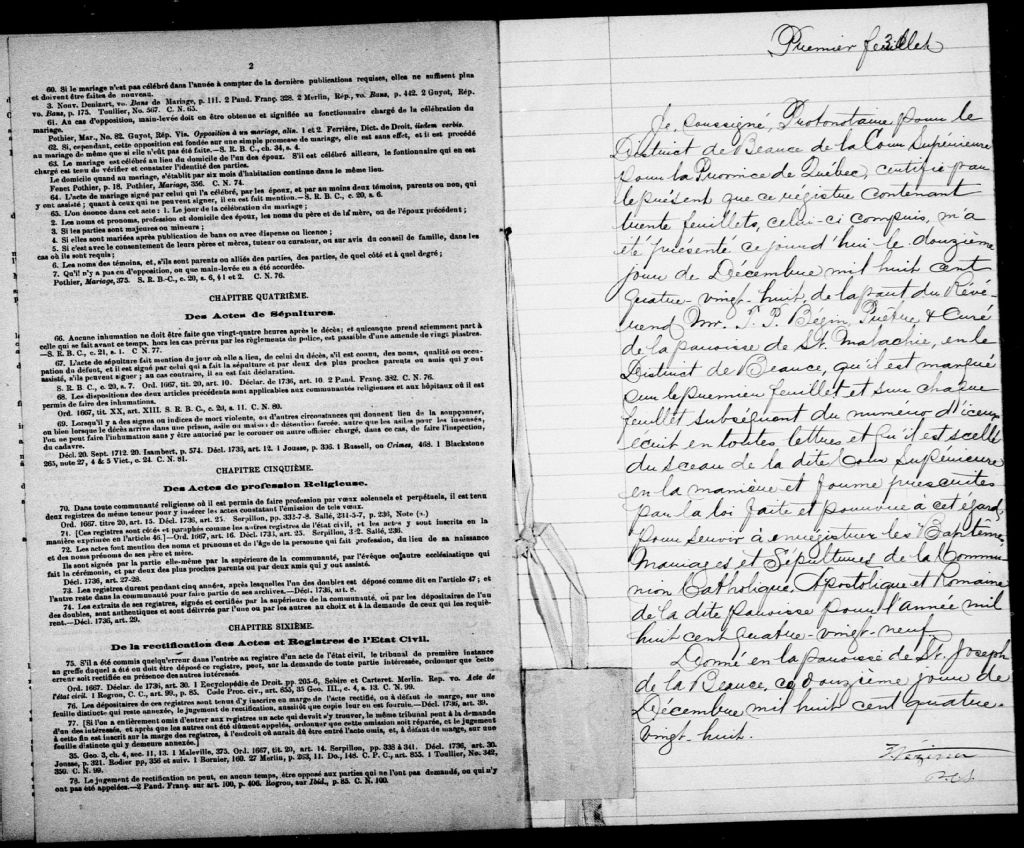 2
60. Si le mariage n'est pas célébré dans l'année à compter de la dernière publications requises, elles ne suffisent plus
et doivent être faites de nouveau.
3. Nouv. Denizart, vo. Bans de Mariage, p. 111. 2 Pand. Franç. 328. 2 Merlin, Rép., vo. Bans, p. 442. 2 Guyot, Rép.
vo. Bans, p. 175. Toullier, No. 567. C. N. 65.
61. Au cas d'opposition, main-levée doit en être obtenue et signifiée au fonctionnaire chargé de la célébration du
mariage.
Pothier, Mar., No. 82. Guyot, Rép. Vis. Opposition à un mariage, alin. 1 et 2. Ferrière, Dict. de Droit, iisdem verbis.
62. Si, cependant, cette opposition est fondée sur une simple promesse de mariage, elle est sans effet, et il est procédé
au mariage de même que si elle n'eût pas été faite.—S. R. B. C., ch. 34, s. 4.
63. Le mariage est célébré au lieu du domicile de l'un des époux. S'il est célébré ailleurs, le fontionnaire qui en est
chargé est tenu de vérifier et constater l'identité des parties.
Le domicile quand au mariage, s'établit par six mois d'habitation continue dans le même lieu.
Fenet Pothier, p. 18. Pothier, Mariage, 356. C. N. 74.
64. L'acte de mariage signé par celui qui l'a célébré, par les époux, et par au moins deux témoins, parents ou non, qui
y ont assisté ; quant à ceux qui ne peuvent signer, il en est fait mention.—S. R. B. C., c. 20, s. 6.
65. L'on énonce dans cet acte : 1. Le jour de la célébration du mariage ;
2. Les noms et pronoms, profession et domicile des époux, les noms du père et de la mère, ou de l'époux précédent ;
3. Si les parties sont majeures ou mineurs ;
4. Si elles sont mariées après publication de bans ou avec dispense ou licence ;
5. Si c'est avec le consentement de leurs pères et mères, tuteur ou curateur, ou sur avis du conseil de famille, dans les
cas où ils sont requis ;
6. Les noms des témoins, et, s'ils sont parents ou alliés des parties, des parties, de quel côté et à quel degré ;
7. Qu'il n'y a pas eu d'opposition, ou que main-levée en a été accordée.
Pothier, Mariage, 375. S. R. B.-C., c. 20, s. 6, § 1 et 2. C. N. 76.
CHAPITRE QUATRIÈME.
Des Actes de Sépultures.
66. Aucune inhumation ne doit être faite que vingt-quatre heures après le décès ; et quiconque prend sciemment part à
celle qui se fait avant ce temps, hors les cas prévus par les règlements de police, est passible d'une amende de vingt piastres.
—S. R. B. C., c. 21, s. 1. C N. 77.
67. L'acte de sépulture fait mention du jour où elle a lieu, de celui du décès, s'il est connu, des noms, qualité ou occu-
pation du défunt, et il est signé par celui qui a fait la sépulture et par deux des plus proches parents ou amis qui y ont
assisté, s'ils peuvent signer ; au cas contraire, il en est fait déclaration.
S. R. B. C., c. 20, s. 7. Ord. 1667, tit. 20, art. 10. Déclar. de 1736, art. 10. 2 Pand. Franç. 382. C. N. 76.
68. Les dispositions des deux articles précédents sont applicables aux communautés religieuses et aux hôpitaux où il est
permis de faire des inhumations.
Ord. 1667, tit. XX, art. XIII. S. R. B. C., c. 20, s. 11. C. N. 80.
69. Lorsqu'il y a des signes ou indices de mort violente, ou d'autres circonstances qui donnent lieu de la soupçonner,
ou bien lorsque le décès arrive dans une prison, asile ou maison de détention forcée, autre que les asiles pour les insensés,
l'on ne peut faire l'inhumation sans y être autorisé par le coroner ou autre officier chargé, dans ce cas, de faire l'inspection,
du cadavre.
Décl. 20. Sept. 1712. 20. Isambert, p. 574. Décl. 1736, art. 12. 1 Jousse, p. 336. 1 Russell, on Crimes, 468. 1 Blackstone
265, note 27, 4 & 5 Vict., c. 24. C. N. 81.
CHAPITRE CINQUIÈME.
Des Actes de profession Religieuse.
70. Dans toute communauté religieuse où il est permis de faire profession par vœux solennels et perpétuels, il est tenu
deux registres de même teneur pour y insérer les actes constatant l'émission de tels vœux.
Ord. 1667. titre 20, art. 15. Décl. 1736, art. 25. Serpillon, pp. 332-7-8. Sallé, 231-5-7, p. 236, Note (s.)
71. [Ces registres sont cotés et paraphés comme les autres registres de l'état civil, et les actes y sont inscrits en la
manière exprimée en l'article 46.]—Ord. 1667, art. 16. Décl. 1733, art. 25. Serpillon, 3-2. Sallé, 236.
72. Les actes font mention des noms et prénoms et de l'âge de la personne qui fait profession, du lieu de sa naissance
et des noms prénoms de ses père et mère.
Ils sont signés par la partie elle-même par la supérieure de la communauté, par l'évêque ou autre ecclésiastique qui
fait la cérémonie, et par deux des plus proches parents ou par deux amis qui y ont assisté.
Décl. 1736, art. 27-28.
73. Les registres durent pendant cinq années, après lesquelles l'un des doubles est déposé comme dit en l'article 47 ; et
l'autre reste dans la communauté pour faire partie de ses archives.—Décl. 1736, art. 8.
74. Les extraits de ses registres, signés et certifiés par la supérieure de la communauté, ou par les dépositaires de l'un
des doubles, sont authentiques et sont délivrés par l'une ou par les autres au choix et à la demande de ceux qui les requiè-
rent.—Décl. 1736, art. 29.
CHAPITRE SIXIÈME.
De la rectification des Actes et Registres de l'Etat Civil.
75. S'il a été commis quelqu'erreur dans l'entrée au registre d'un acte de l'état civil, le tribunal de première instance
au greffe duquel a été ou doit être déposé ce registre, peut, sur la demande de toute partie intéressée, ordonner que cette
erreur soit rectifiée en présence des autres intéressés
Ord. 1667. Déclar. de 1736, art. 30. 1 Encyclopédie de Droit. pp. 205-6, Sebire et Carteret. Merlin. Rep. vo. Acte de
l'état civil. 1 Rogron, C. C., art. 99., p. 85. Code Proc. civ., art. 855, 35 Geo. III., c. 4, s. 13. C. N. 99.
76. Les dépositaires de ces registres sont tenus d'y inscrire en marge de l'acte rectifié, ou à défaut de marge, sur une
feuille distincte qui reste annexée, le jugement de rectification, aussitôt que copie leur en est fournie.—Décl. 1736, art. 39.
77. [Si l'on a entièrement omis d'entrer aux registres un acte qui devait s'y trouver, le même tribunal peut à la demande
d'un des intéressés, et après que les autres ont été dûment appelés, ordonner que cette omission soit réparée, et le jugement
à cette fin est inscrit sur la marge des registres, à l'endroit où aurait dû être entré l'acte omis, et, à défaut de marge, sur une
feuille distincte qui y demeure annexée.]
35. Geo. 3, ch. 4, sec. 11, 13. 1 Maleville, 375. Ord. 1667, tit. 20, art. 14. Serpillon, pp. 338 à 341. Décl. 1736, art. 30.
Jousse, p. 321. Rodier pp, 356 et suiv. 1 Bornier, 160. 27 Merlin, p. 263, 11. Do., 148. C. P. C., art. 855. 1 Toullier, No. 342,
350. C. N. 99.
78. Le jugement de rectification ne peut, en aucun temps, être opposé aux parties qui ne l'ont pas demandé, ou qui n'y
ont pas été appelées.—2 Pand. Franç. sur art. 100, p. 406. Rogron, sur Ibid., p. 85. C N. 100.
Premier feuillet
Je, soussigné, Protonotaire pour le
District de Beauce de la Cour Supérieure
pour la Province de Québec, certifie par
le présent que ce régistre contenant
trente feuillets, celui-ci compris, m'a
été présenté ce jourd'hui le douzième
jour de Décembre mil huit cent
quatre-vingt-huit, de la part du Révé-
rend Mr. J. P. Bégin, Prêtre & Curé
de la paroisse de St. Malachie, en le
District de Beauce, qu'il est marqué
sur le premier feuillet et sur chaque
feuillet subséquent du numéro d'iceux
écrit en toutes lettres et qu'il est scellé
du sceau de la dite Cour Supérieure
en la manière et forme prescrites
par la loi faite et pourvue à cet égard
pour servir à enrégistrer les Baptêmes,
Mariages et Sépultures de la Commu-
nion Catholique, Apostolique et Romaine
de la dite paroisse pour l'année mil
huit cent quatre-vingt-neuf
Donné en la paroisse de St. Joseph
de la Beauce, ce douzième jour de
Décembre mil huit cent quatre-
vingt-huit.
Vézina
P.C.S.